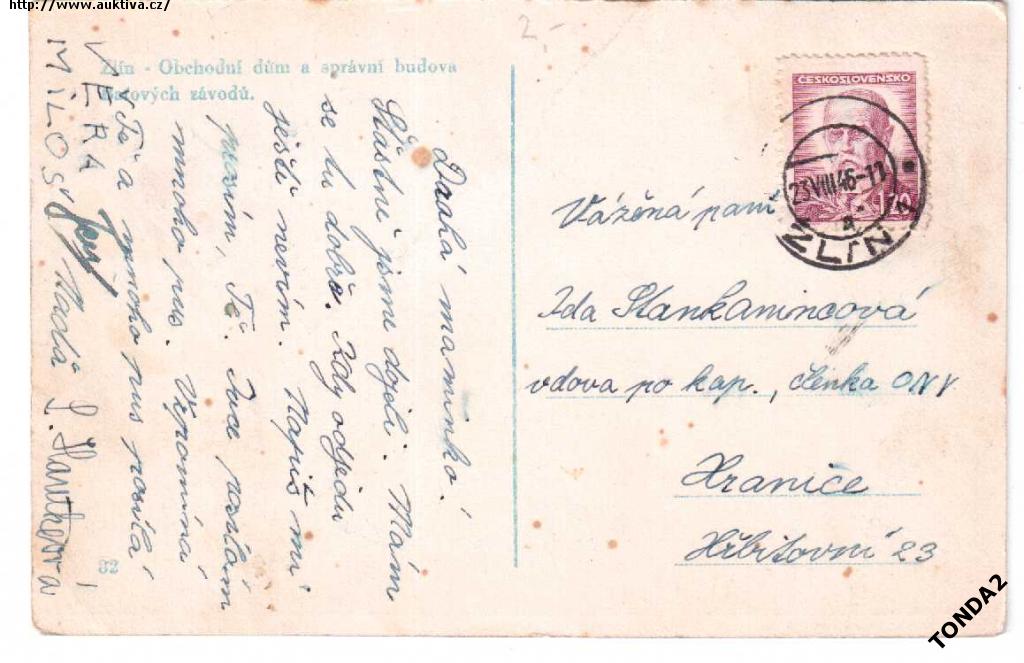 http://www.auktiva.cz/
2,-
Zlín - Obchodní dům a správní budova
Baťových závodů.
Drahá maminko!
Šťastně jsme dojeli. Mám
se tu dobře. Kdy odjedu
ještě nevím. Napiš mi
prosím, Tě. Ruce posílám
mnoho pus. Vzpomíná
Tě a mnoho pus posílá
Naďa
VĚRA
MILOŠ
82
ČESKOSLOVENSKO
23.VIII.46-11
ZLÍN 2
Vážená paní
Ida Stankanincová
vdova po kap., členka ONV.
Hranice
Hřbitovní 23
TONDA2